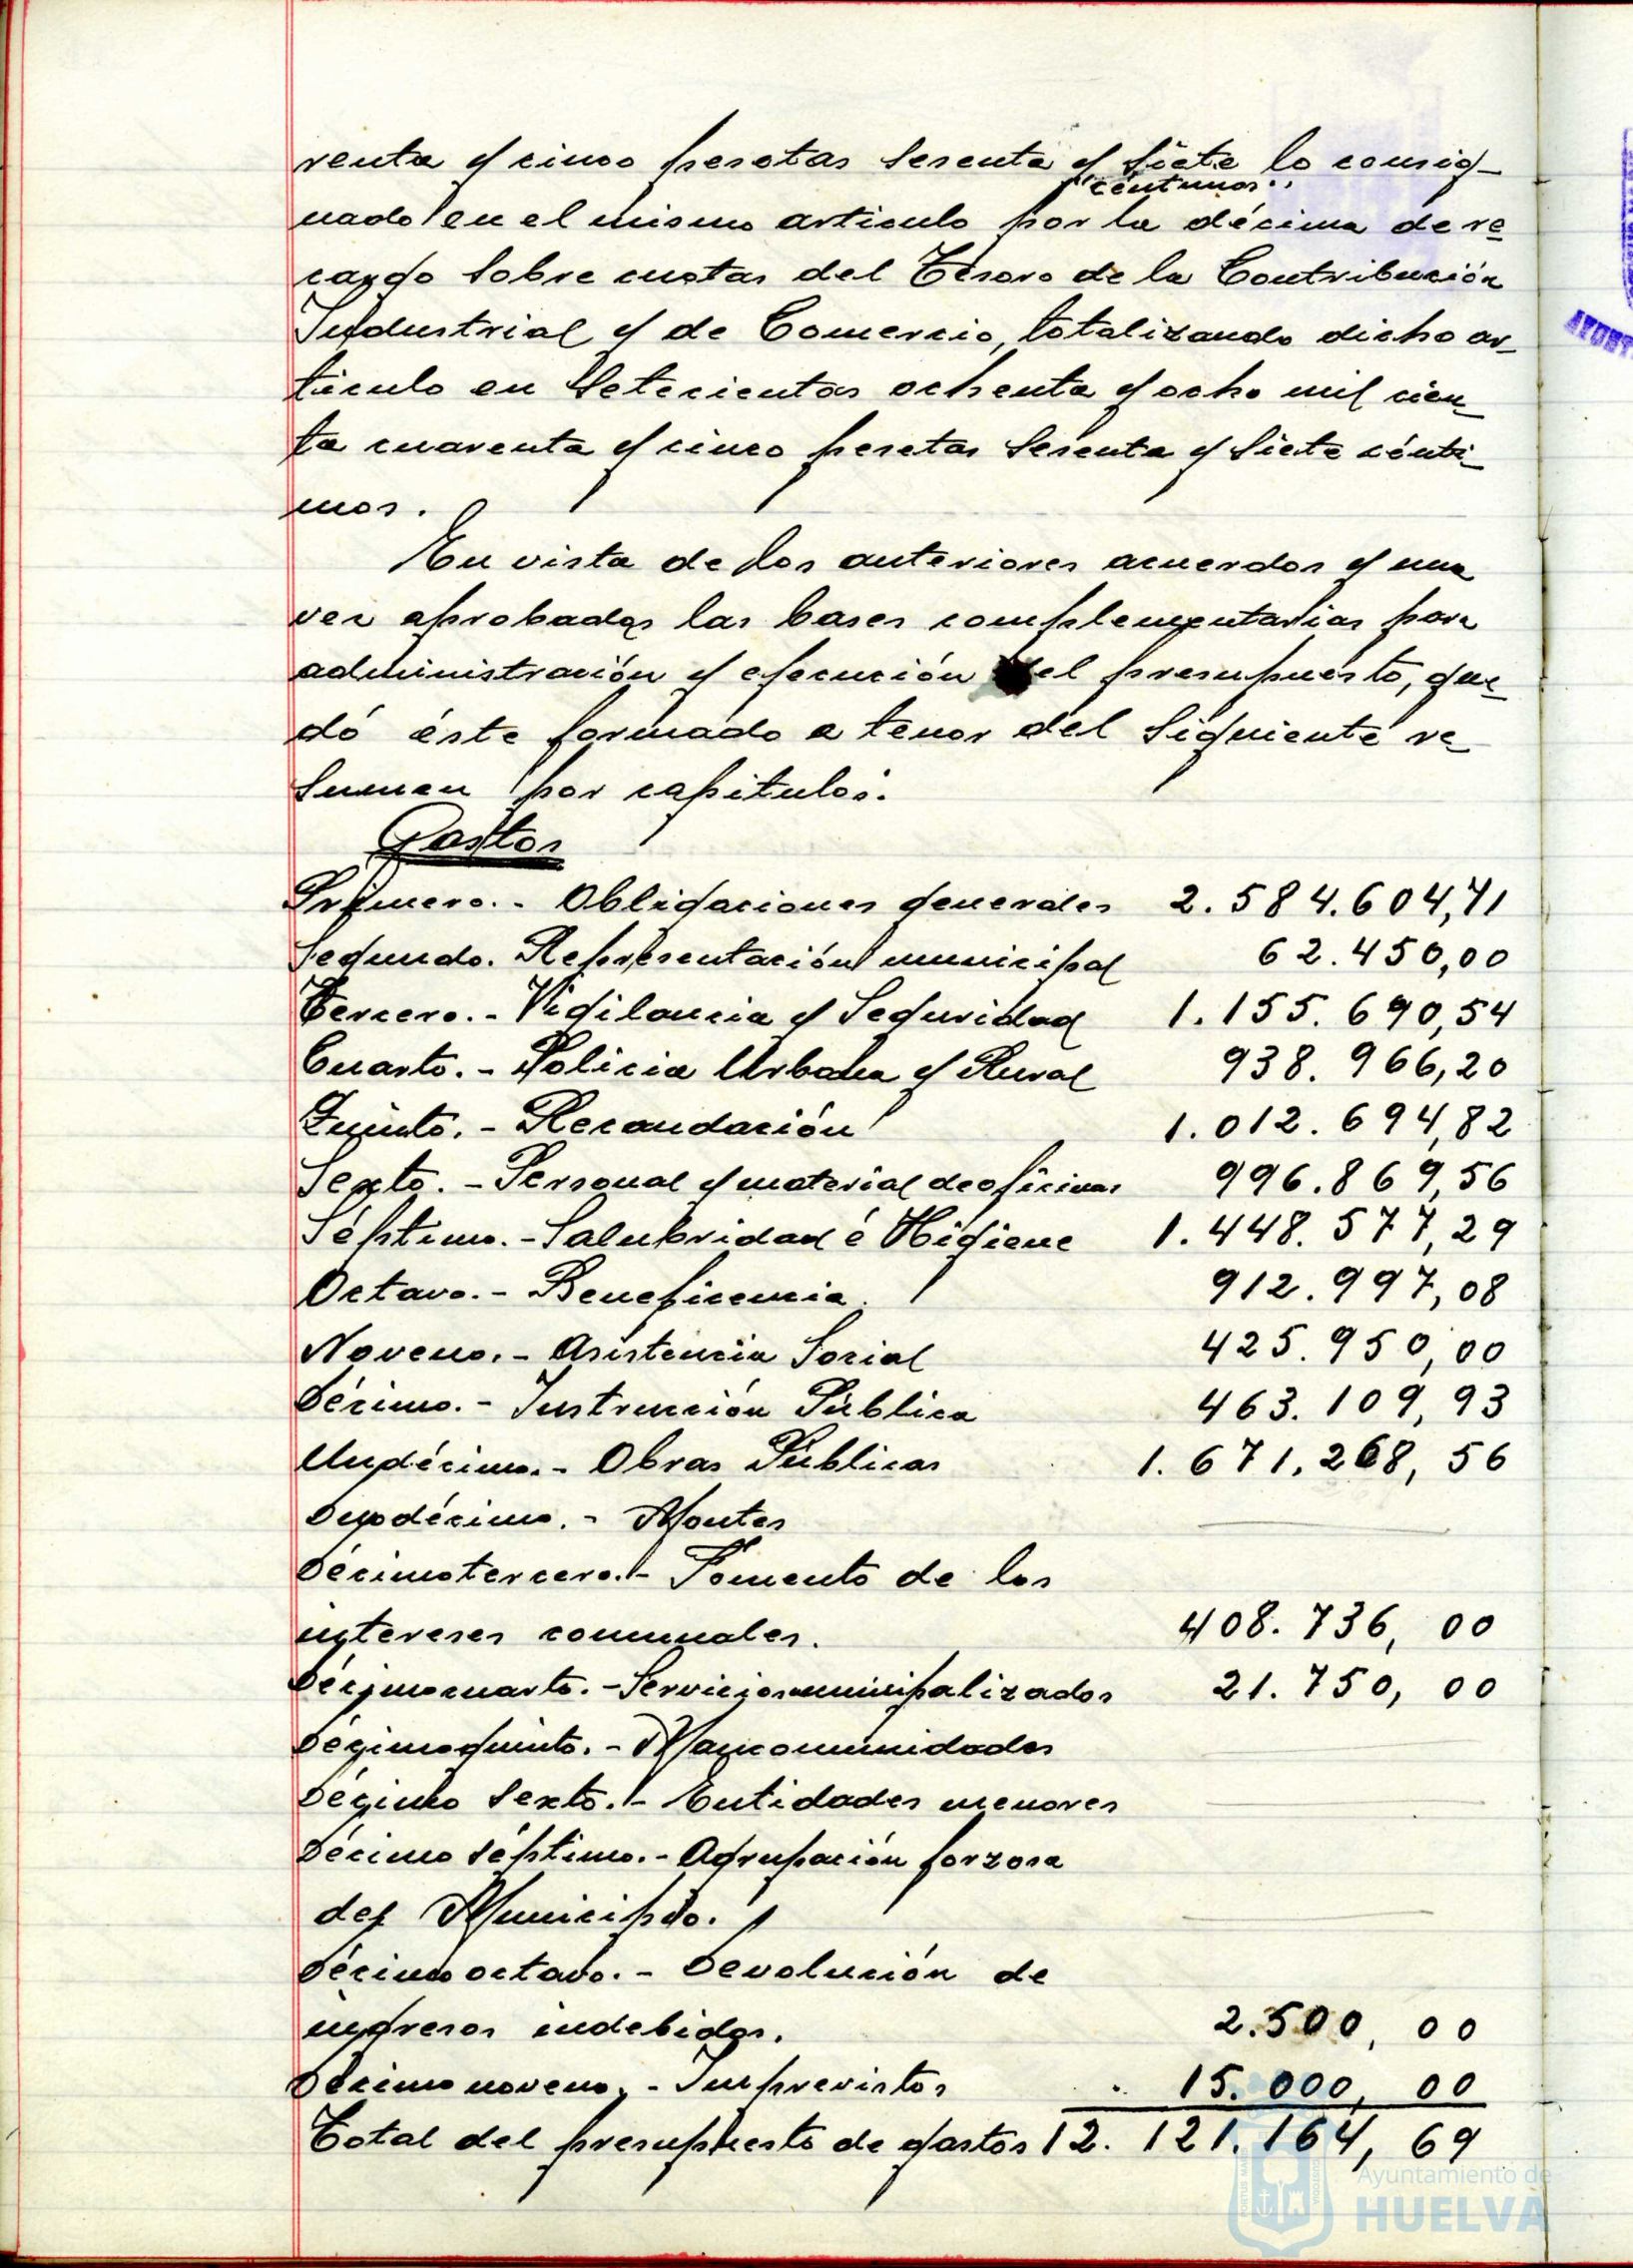 renta y cinco pesetas sesenta y siete lo consig-
céntimos
nado en el mismo articulo por la décima de re
cargo sobre cuotas del Tesoro de la Contribución
Industrial y de Comercio, totalizando dicho ar-
ticulo en setecientas ochenta y ocho mil cien-
to cuarenta y cinco pesetas sesenta y siete cénti-
mos.
En vista de los anteriores acuerdos y una
vez aprobadas las bases complementarias para
administración y ejecución del presupuesto, que-
dó éste formado a tenor del siguiente re-
sumen por capitulos:
Gastos
Primero.- Obligaciones generales 2.584.604,71
Segundo. Representación municipal 62.450,00
Tercero.- Vigilancia y Seguridad 1.155.690,54
Cuarto.- Policia Urbana y Rural 938.966,20
Quinto.- Recaudación 1.012.694,82
Sexto.- Personal y material de oficinas 996.869,56
Séptimo.- Salubridad é Higiene 1.448.577,29
Octavo.- Beneficencia. 912.997,08
Noveno.- Asistencia Social 425.950,00
Décimo.- Instrucción Pública 463.109,93
Undécimo.- Obras Públicas 1.671.268,56
Duodécimo.- Montes
Décimotercero.- Fomento de los
intereses comunales. 408.736,00
Décimocuarto.- Servicios municipalizados 21.750,00
Décimoquinto.- Mancomunidades
Décimo sexto.- Entidades menores
Décimo séptimo.- Agrupación forzosa
del Municipio.
Décimo octavo.- Devolución de
ingresos indebidos. 2.500,00
Décimo noveno.- Imprevistos 15.000,00
Total del presupuesto de gastos 12.121.164,69
Ayuntamiento de
HUELVA